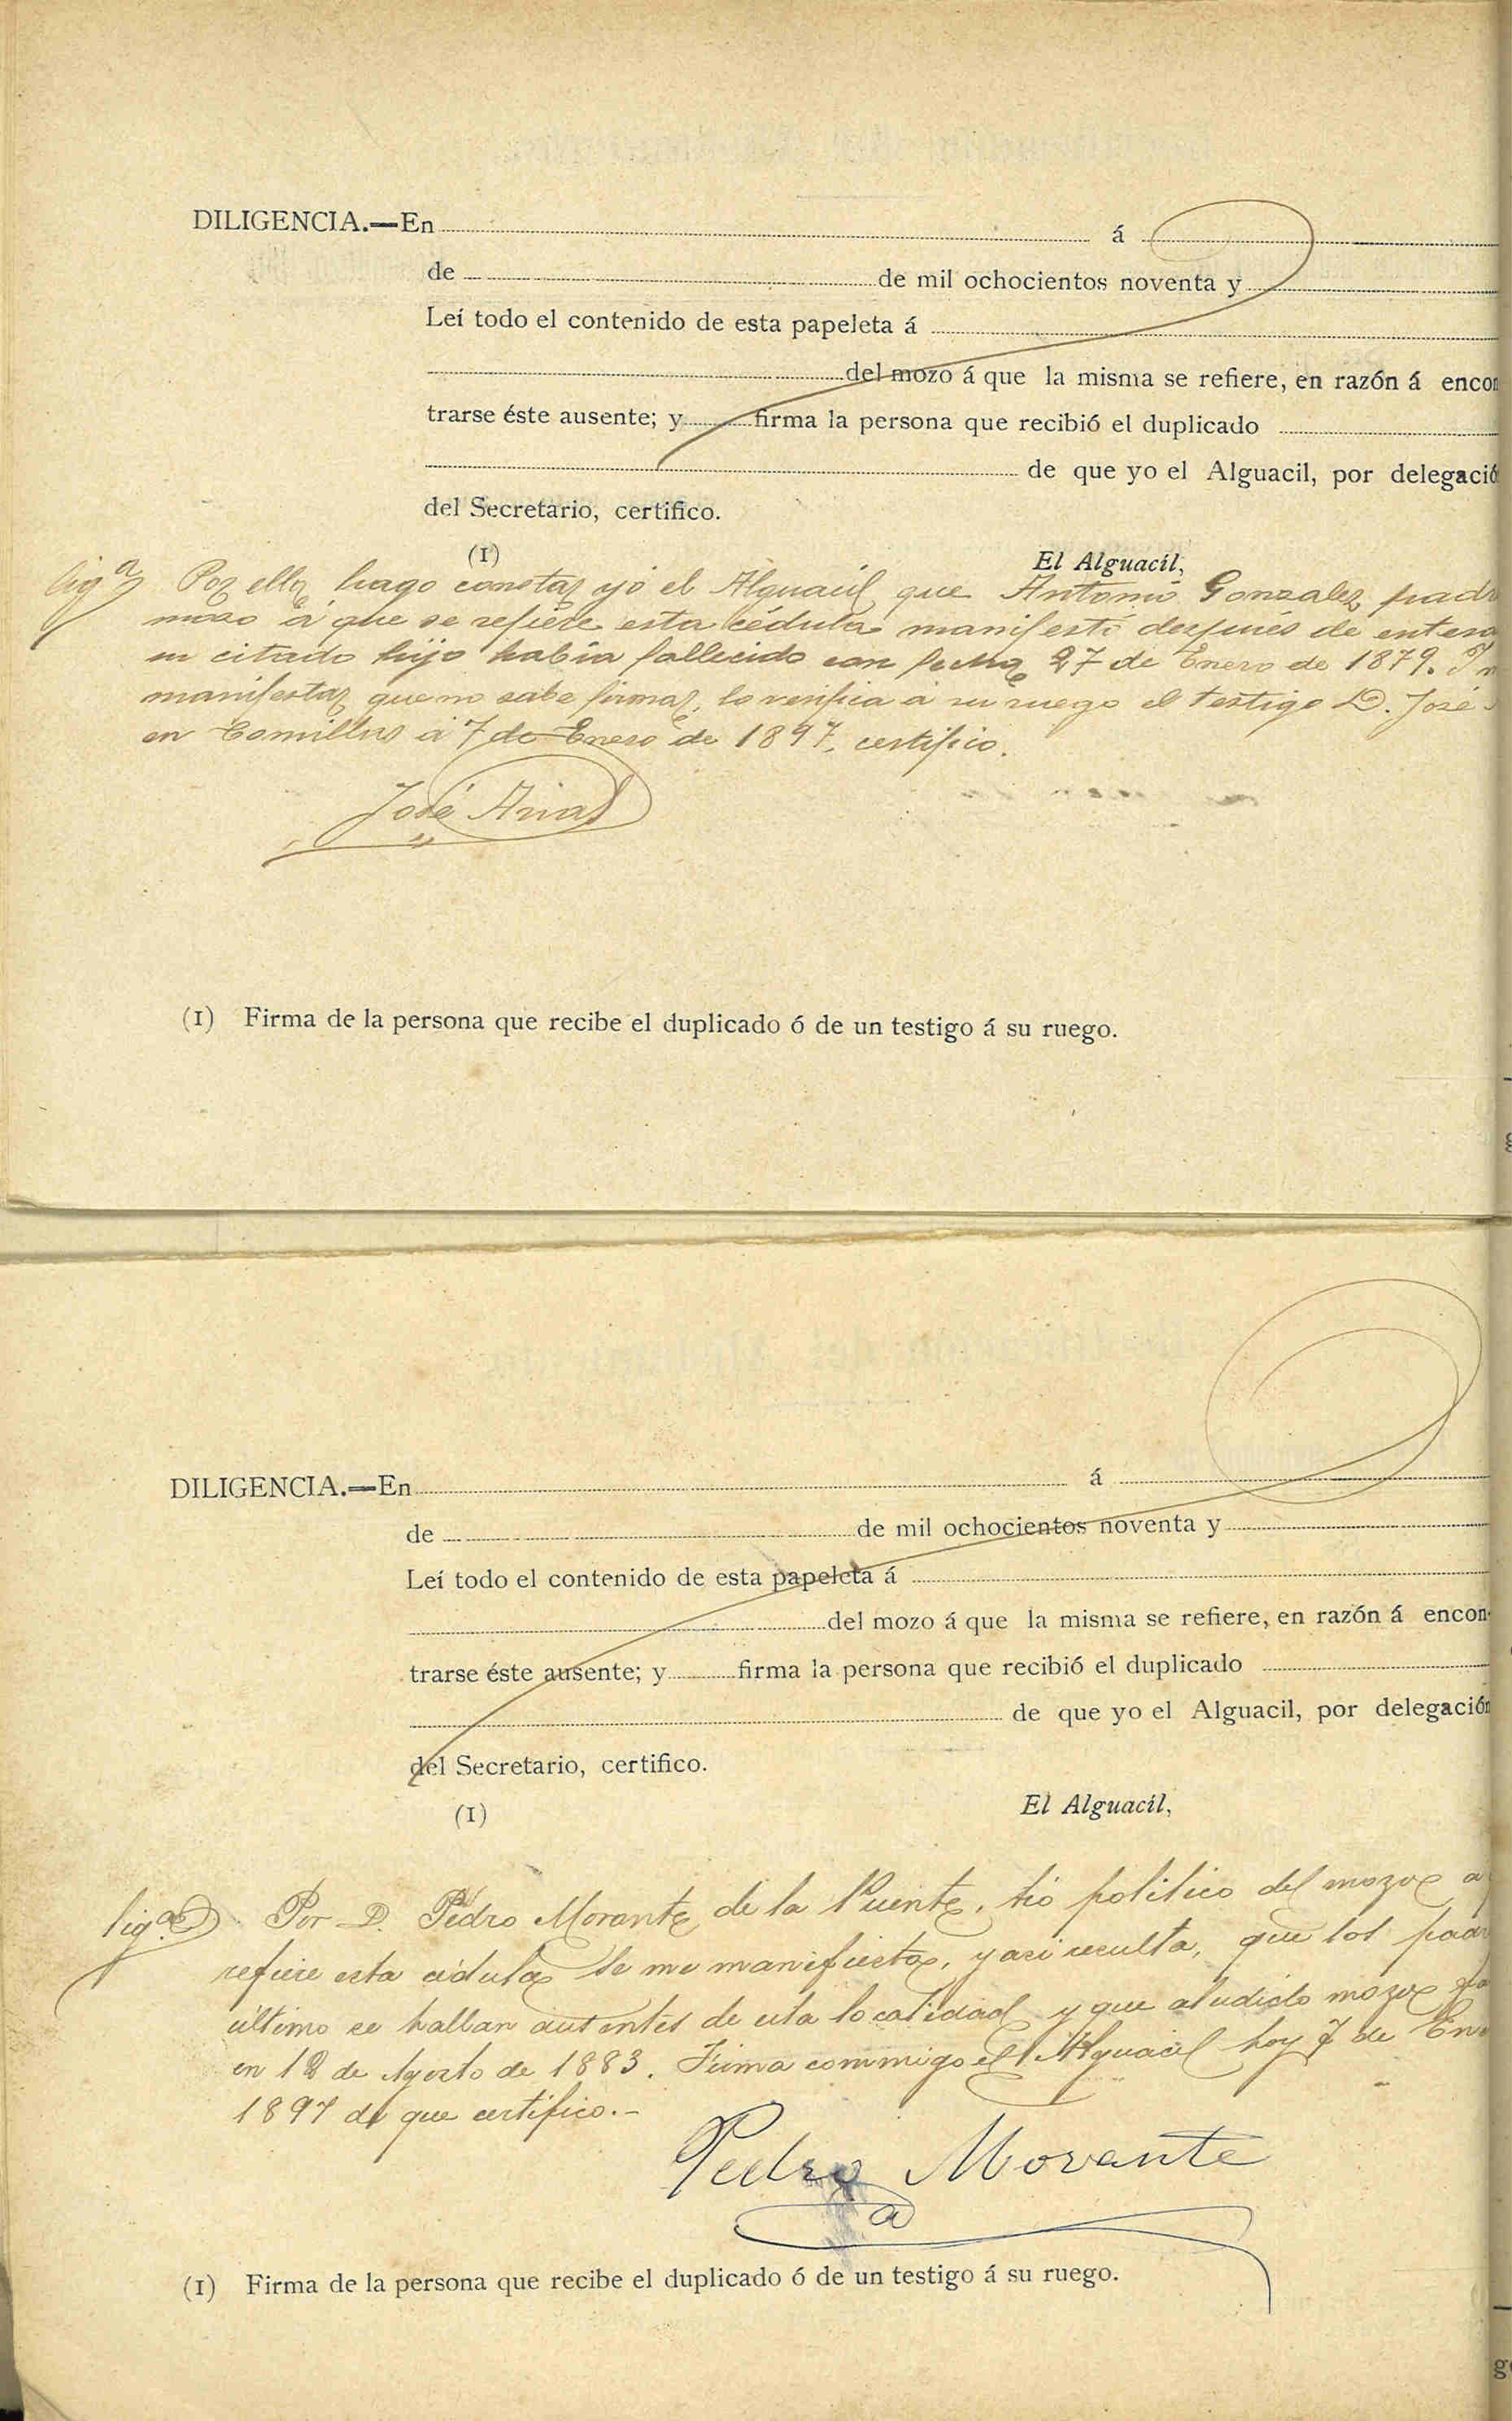 DILIGENCIA.—En á
de de mil ochocientos noventa y
Leí todo el contenido de esta papeleta á
del mozo á que la misma se refiere, en razón á encon
trarse éste ausente; y firma la persona que recibió el duplicado
de que yo el Alguacil, por delegació
del Secretario, certifico.
(1) El Alguacil,
lig.ª Por ella hago constar yo el Alguacil que Antonio Gonzalez padr
mozo á que se refiere esta cédula manifestó después de entera
su citado hijo había fallecido con fecha 27 de Enero de 1879. Y
manifestar que no sabe firmar, lo verifica á su ruego el testigo D. José
en Comillas á 7 de Enero de 1897, certifico.
José Arias
(1) Firma de la persona que recibe el duplicado ó de un testigo á su ruego.
DILIGENCIA.—En á
de de mil ochocientos noventa y
Leí todo el contenido de esta papeleta á
del mozo á que la misma se refiere, en razón á encon-
trarse éste ausente; y firma la persona que recibió el duplicado
de que yo el Alguacil, por delegación
del Secretario, certifico.
(1) El Alguacil,
lig.ª Por D. Pedro Morante de la Puente, tío político del mozo a
refiere esta cédula se me manifiesta, y asi resulta, que los padr
último se hallan ausentes de esta localidad y que aludido mozo
en 18 de Agosto de 1883. Firma conmigo el Alguacil hoy 7 de En
1897 de que certifico.-
Pedro Morante
(1) Firma de la persona que recibe el duplicado ó de un testigo á su ruego.